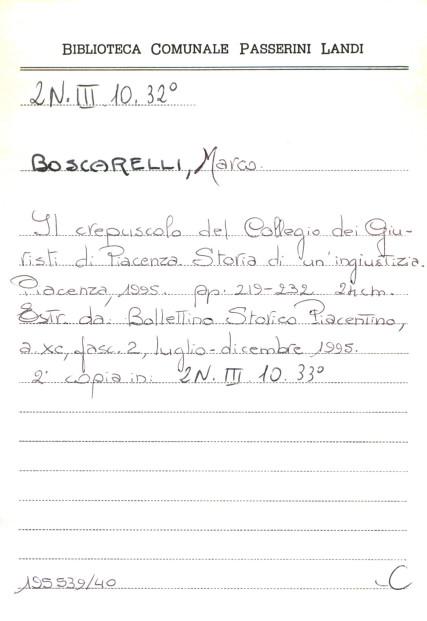 BIBLIOTECA COMUNALE PASSERINI LANDI
2N. III. 10. 32°
BOSCARELLI, Marco.
Il crepuscolo del Collegio dei Giu-
risti di Piacenza. Storia di un'ingiustizia.
Piacenza, 1995. pp. 219-232 24cm.
Estr. da: Bollettino Storico Piacentino,
a. XC, fasc. 2, luglio-dicembre 1995.
2° copia in: 2N. III. 10. 33°
195539/40 C